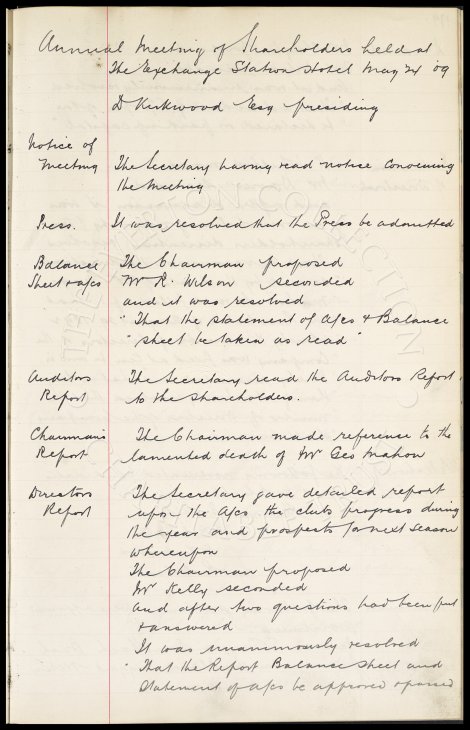 Annual Meeting of Shareholders held at
The Exchange Station Hotel May 24 '09
D Kirkwood Esq presiding
Notice of
Meeting
The Secretary having read notice convening
the Meeting
Press.
It was resolved that the Press be admitted
Balance
Sheet & a/cs
The Chairman proposed
Mr R. Wilson seconded
and it was resolved
" That the statement of A/cs & Balance
" sheet be taken as read "
Auditors
Report
The Secretary read the Auditors Report
to the Shareholders.
Chairman's
Report
The Chairman made reference to the
lamented death of Mr Geo Mahon
Directors
Report
The Secretary gave detailed report
upon the A/cs the clubs progress during
the year and prospects for next season
whereupon
The Chairman proposed
Mr Kelly seconded
And after two questions had been put
& answered
It was unanimously resolved
" That the Report Balance Sheet and
Statement of A/cs be approved & passed